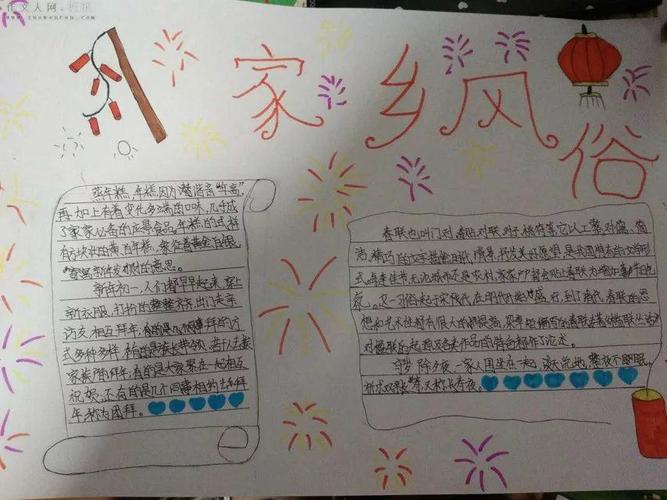 作文人网
www.zuowenren.com
家乡风俗
蒸年糕，年糕因为谐音"年高"，
再加上有着变化多端的口味，几乎成
了家家必备的应景食品。年糕的式样
有方块状的黄、白年糕，象征着黄金白银，
新年发财的意思。
新年初一，人们都早早起来，穿上
新衣服，打扮的整整齐齐，出门去走
访友，相互拜年，
式多种多样，有的是族长带领若干人挨
家挨户的拜年；有的是大家聚在一起相互
祝贺；还有的是几个同事相约去拜
年，称为团拜。
春联也叫门对、春贴、对联、对子、桃符等，它以工整、对偶、简
洁、精巧的文字描绘时代背景，抒发美好愿望，是我国特有的文学形
式。每逢佳节，无论城市还是农村，家家户户都会贴春联为增加喜节的
气
象。这一习俗起于宋代，在明代开始盛行，到了清代，春联的思
想和艺术性都有很大的提高，
对楹联的起源及各类作品的特色都作了论述。
守岁 除夕夜一家人围坐在一起，谈天说地，整夜不眠